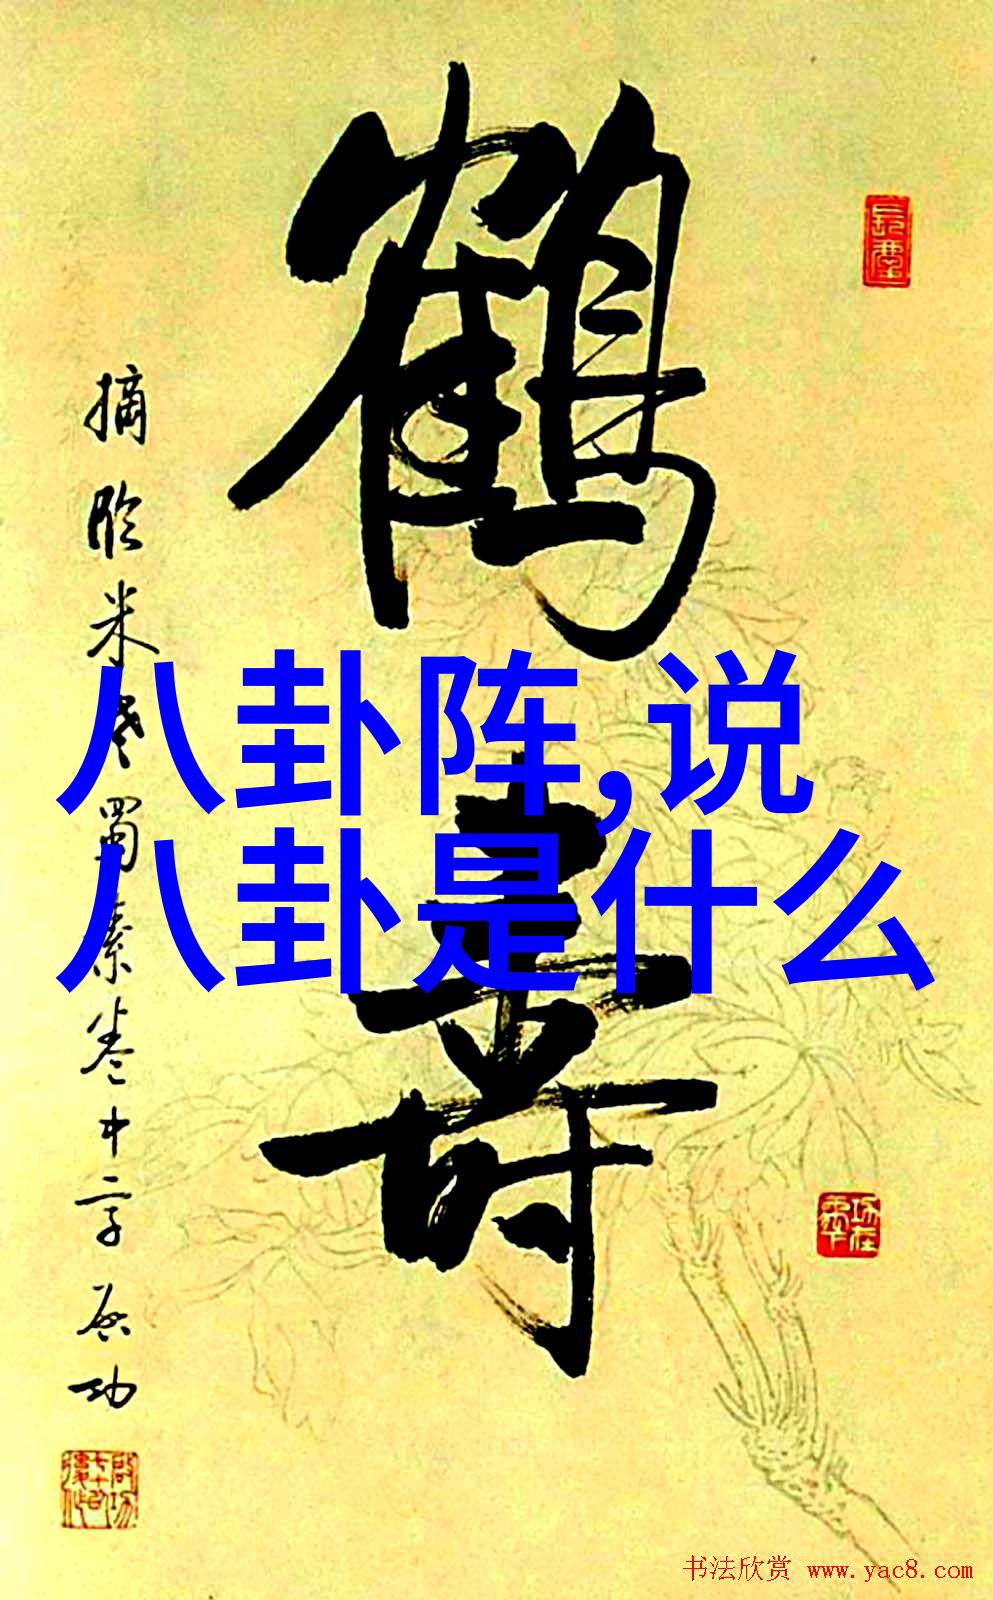 鹤寿
摘临米老蜀素卷中字启功
八卦阵,说
八卦是什么
书法欣赏 www.yac8.com